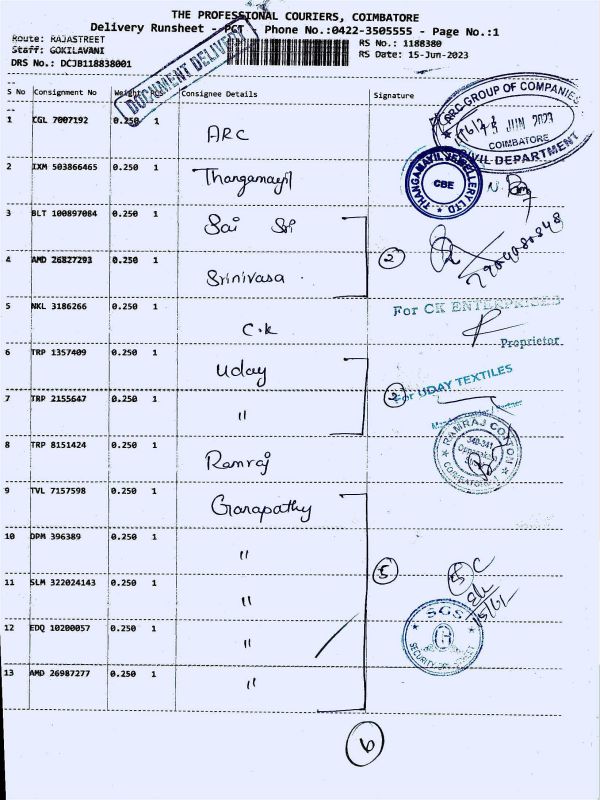 THE PROFESSIONAL COURIERS, COIMBATORE
Delivery Runsheet - PCT Phone No.:0422-3505555 - Page No.:1
Route: RAJASTREET
RS No.: 1188380
Staff: GOKILAVANI
RS Date: 15-Jun-2023
DRS No.: DCJB118838001
DOCUMENT DELIVERY
S No Consignment No Weight Pcs Consignee Details Signature
1 CGL 7007192 0.250 1 ARC
ARC GROUP OF COMPANIES
JUN 2023
COIMBATORE
CIVIL DEPARTMENT
2 IXM 503866465 0.250 1 Thangamayil
THANGAMAYIL JEWELLERY LTD
CBE
3 BLT 100897084 0.250 1 Sai Sri
2
4 AMD 26827293 0.250 1 Srinivasa
5 NKL 3186266 0.250 1 C.K
For CK ENTERPRISES
Proprietor
6 TRP 1357409 0.250 1 Uday
For UDAY TEXTILES
Partner
7 TRP 2155647 0.250 1 "
8 TRP 8151424 0.250 1 Ramraj
RAMRAJ COTTON
340-341
COIMBATORE-1
9 TVL 7157598 0.250 1 Ganapathy
10 DPM 396389 0.250 1 "
5
11 SLM 322024143 0.250 1 "
12 EDQ 10200057 0.250 1 "
SGS
SECURITY
13 AMD 26987277 0.250 1 "
6